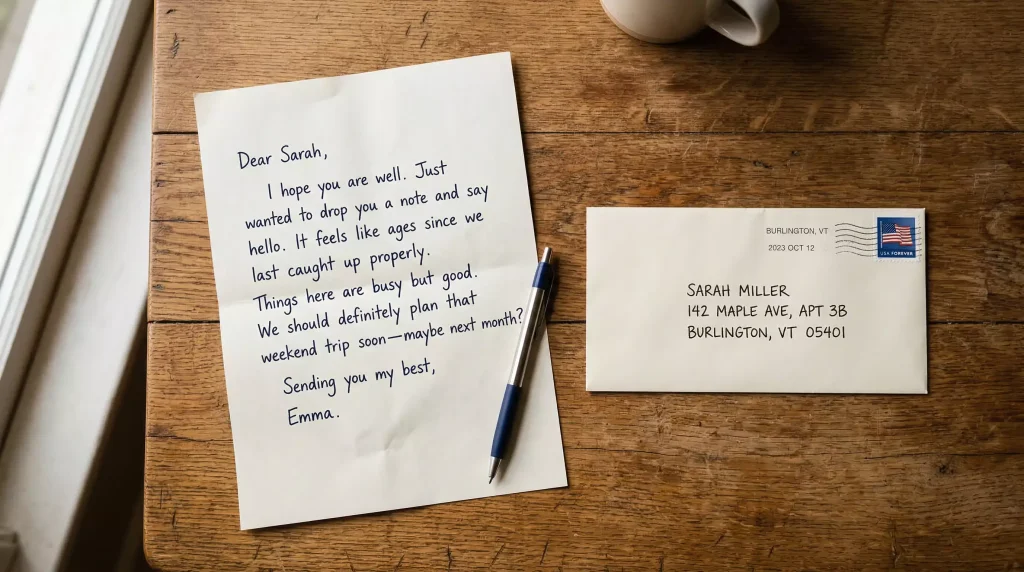 Dear Sarah,
I hope you are well. Just
wanted to drop you a note and say
hello. It feels like ages since we
last caught up properly.
Things here are busy but good.
We should definitely plan that
weekend trip soon—maybe next month?
Sending you my best,
Emma.
BURLINGTON, VT
2023 OCT 12
USA FOREVER
SARAH MILLER
142 MAPLE AVE, APT 3B
BURLINGTON, VT 05401